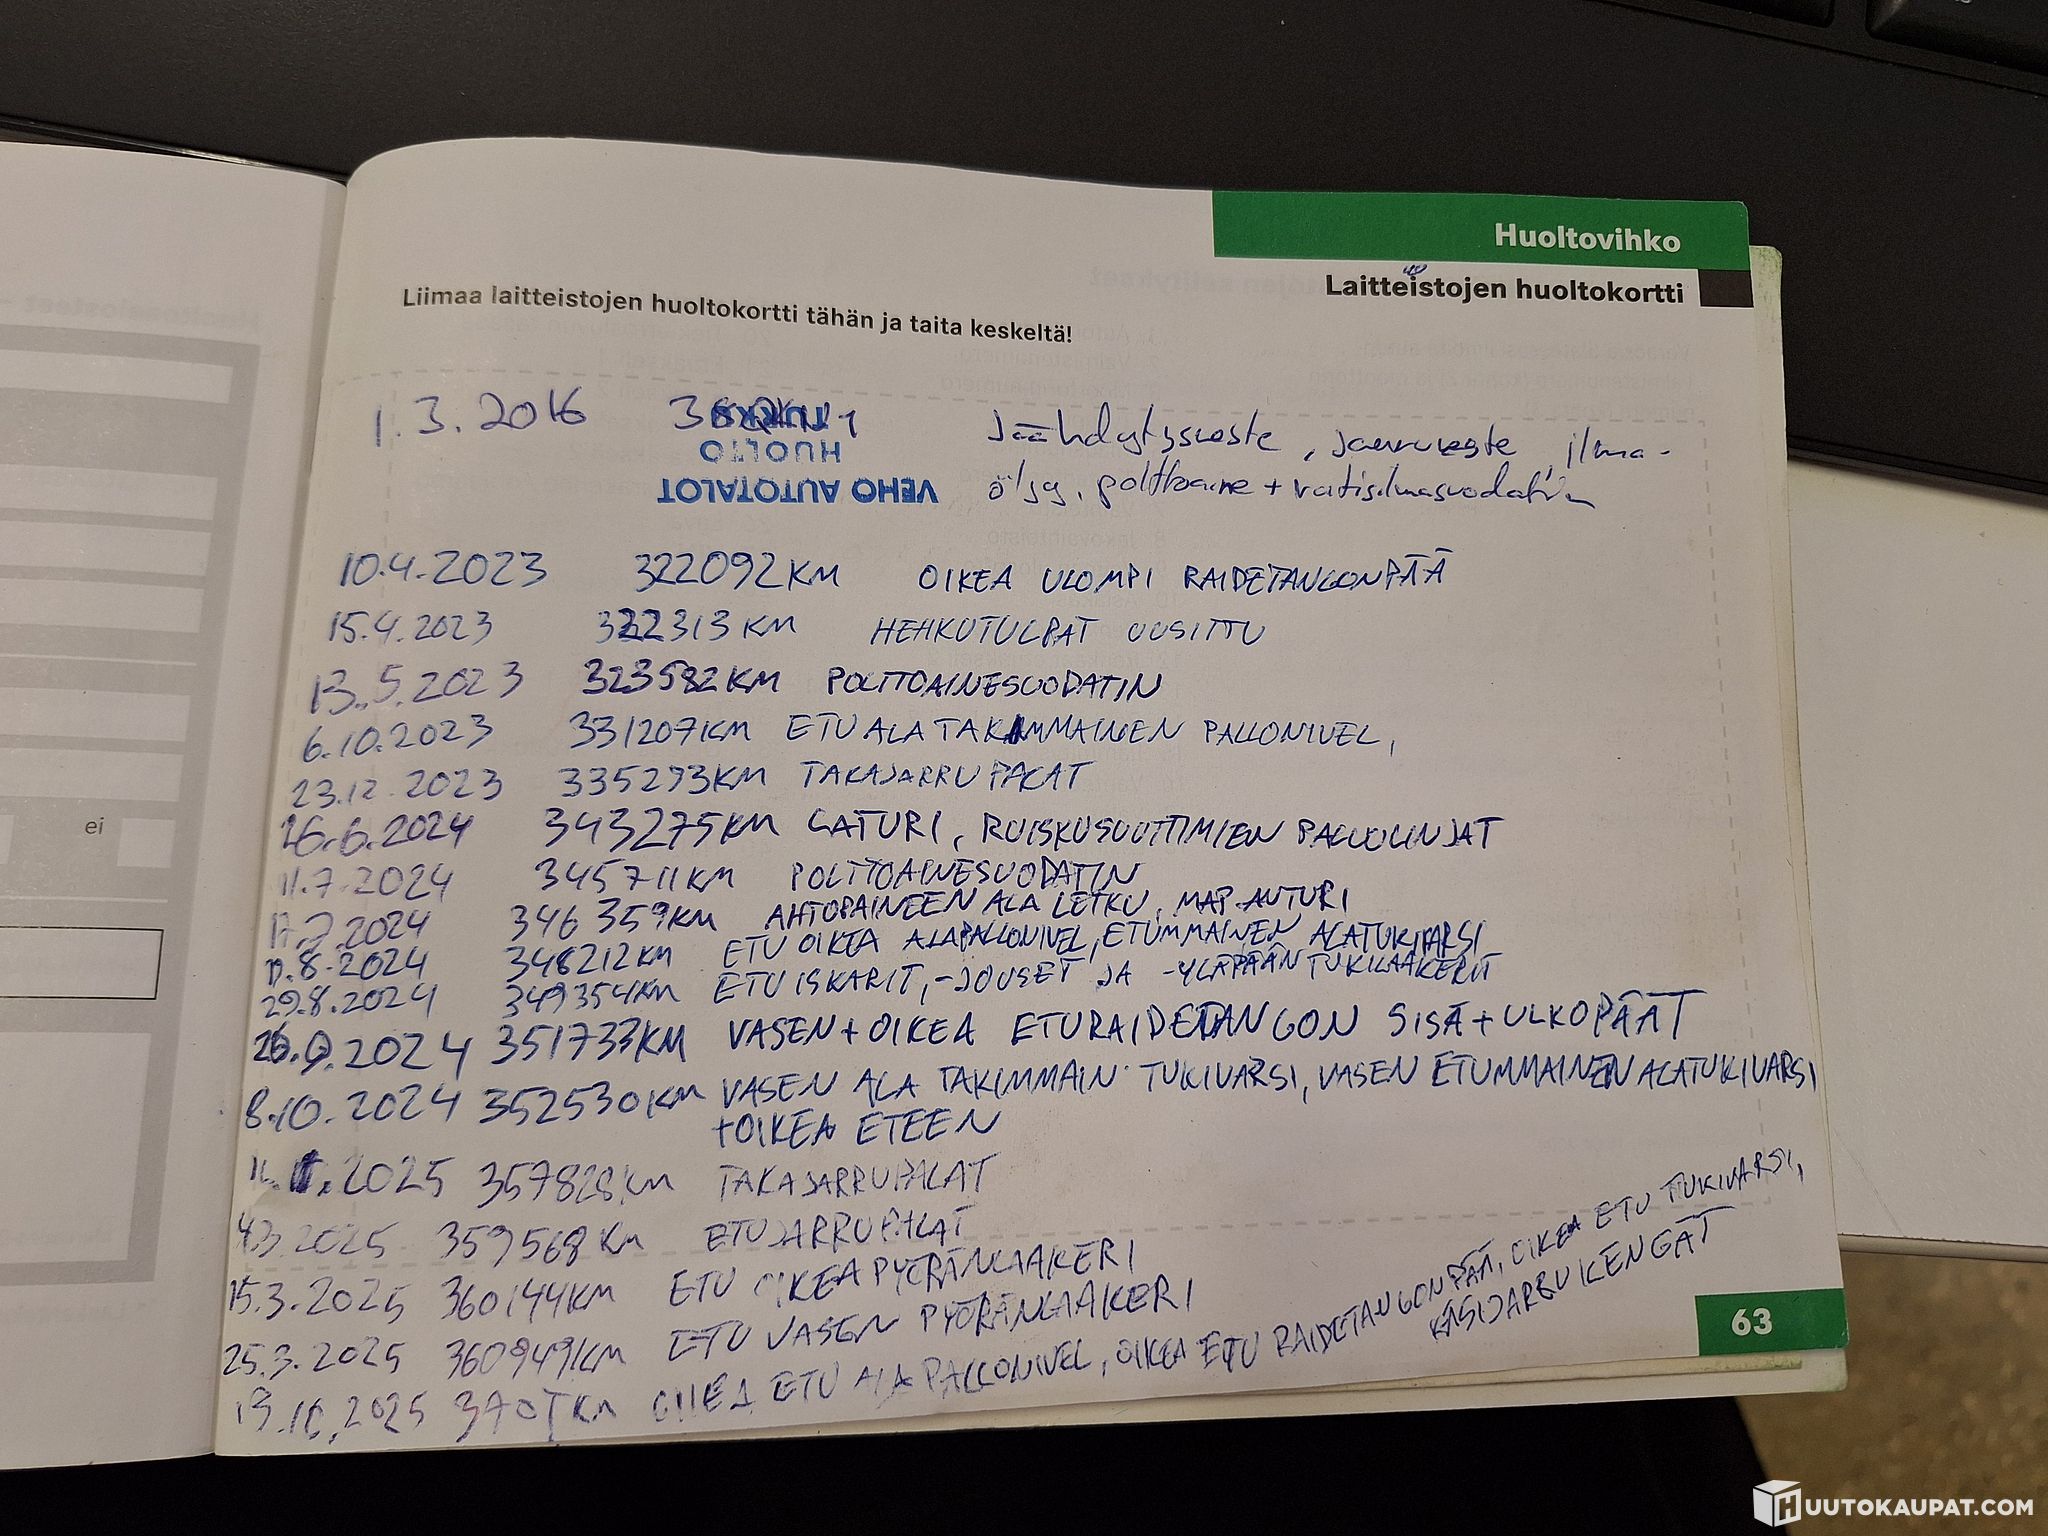 Huoltovihko
Laitteistojen huoltokortti
Liimaa laitteistojen huoltokortti tähän ja taita keskeltä!
1.3.2016 Jäähdytysneste, jarruneste, ilma-
TURKU
HUOLTO
VEHO AUTOTALOT
öljy, polttoaine + raitisilmasuodatin
10.4.2023 322092KM OIKEA ULOMPI RAIDETANGONPÄÄ
15.4.2023 322313KM HEHKUTULPAT UUSITTU
13.5.2023 323582KM POLTTOAINESUODATIN
6.10.2023 331207KM ETU ALA TAKIMMAINEN PALLONIVEL,
23.12.2023 335293KM TAKAJARRUPALAT
26.6.2024 343275KM LATURI, RUISKUSUUTTIMIEN PALUULINJAT
11.7.2024 345711KM POLTTOAINESUODATIN
17.7.2024 346359KM AHTOPAINEEN ALA LETKU, MAP-ANTURI
8.2024 348212KM ETU OIKEA ALAPALLONIVEL, ETUMMAINEN ALATUKIVARSI
29.8.2024 349354KM ETU ISKARIT, -JOUSET JA -YLÄPÄÄN TUKILAAKERIT
9.2024 351733KM VASEN+OIKEA ETURAIDETANGON SISÄ+ULKOPÄÄT
8.10.2024 352530KM VASEN ALA TAKIMMAIN TUKIVARSI, VASEN ETUMMAINEN ALATUKIVARSI
+OIKEA ETEEN
2025 357828KM TAKAJARRUPALAT
4.3.2025 359568KM ETUJARRUPALAT
15.3.2025 360144KM ETU OIKEA PYÖRÄNLAAKERI
25.3.2025 360949KM ETU VASEN PYÖRÄNLAAKERI
13.10.2025 OIKEA ETU ALA PALLONIVEL, OIKEA ETU RAIDETANGONPÄÄ, OIKEA ETU TUKIVARSI,
KÄSIJARRUKENGÄT
63
ei
HUUTOKAUPAT.COM